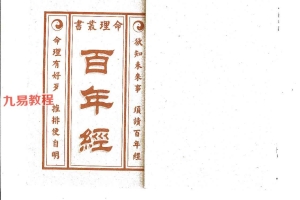 命理叢書
欲知未來事 須讀百年經
百年經
命理有好歹 推排使自明
九易教程
www.9yjc.com